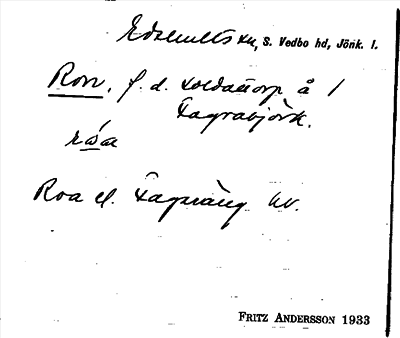 Edshults sn, S. Vedbo hd, Jönk. l.
Ron, f. d. soldattorp å 1
Fagrabjörk.
Roa el. Fagräng kv.
FRITZ ANDERSSON 1933